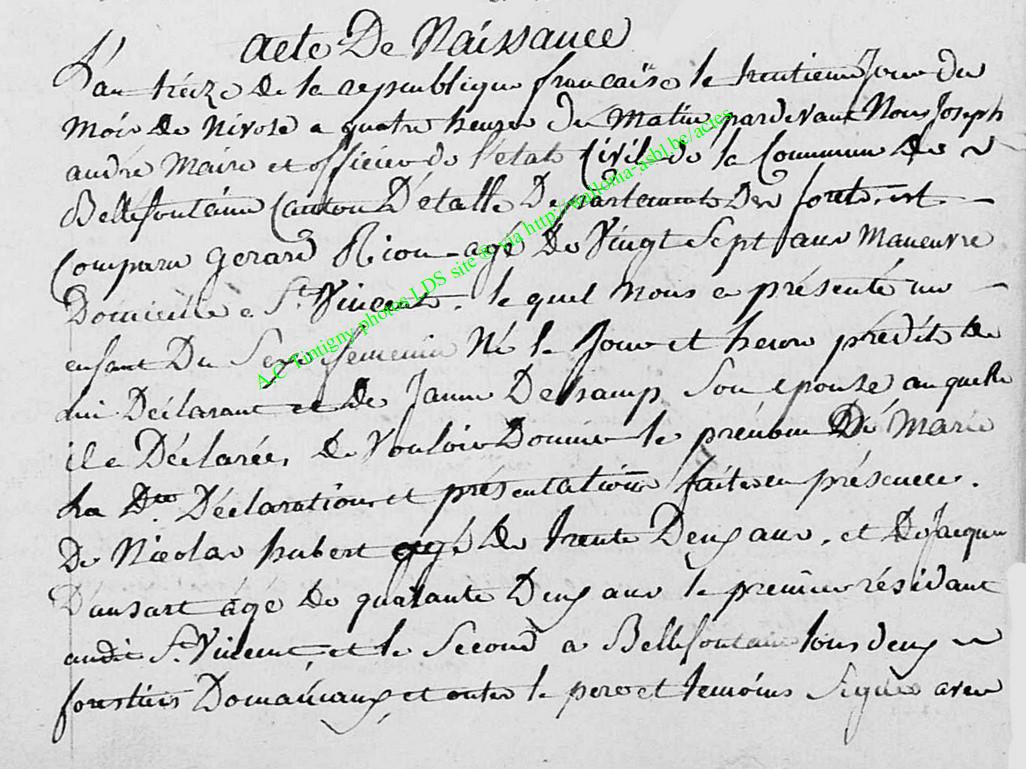 acte De Naissance
L'an treize de la republique française le trentieme Jour du
mois de Nivose a quatre heures du Matin pardevant Nous Joseph
andré Maire et officier de l'état Civil de la Commune de
Bellefontaine Canton D'étalle Departement Des forets, est
Comparu gerard Riou agé De Vingt Sept ans Maneuvre
Domicilie a St. Vincent, le quel Nous a présenté un
enfant Du Sexe femenin Né le Jour et heure predits de
lui Déclarant et de Janne Dechamp Son epouse au quelle
il a Déclarées de Vouloir Donner le prénom De Marie
La Dte. Déclaration et présentation faites en présence
De Nicolas hubert agé de trente Deux ans, et De Jacques
Dausart agé De quarante Deux ans le premier résidant
audit St. Vincent, et le Second a Bellefontaine tous deux
forestiers Domaniaux et ont le pere et temoins Signés avec
A.C Tintigny photos LDS site ac via http://wallonia-asbl.be/actes